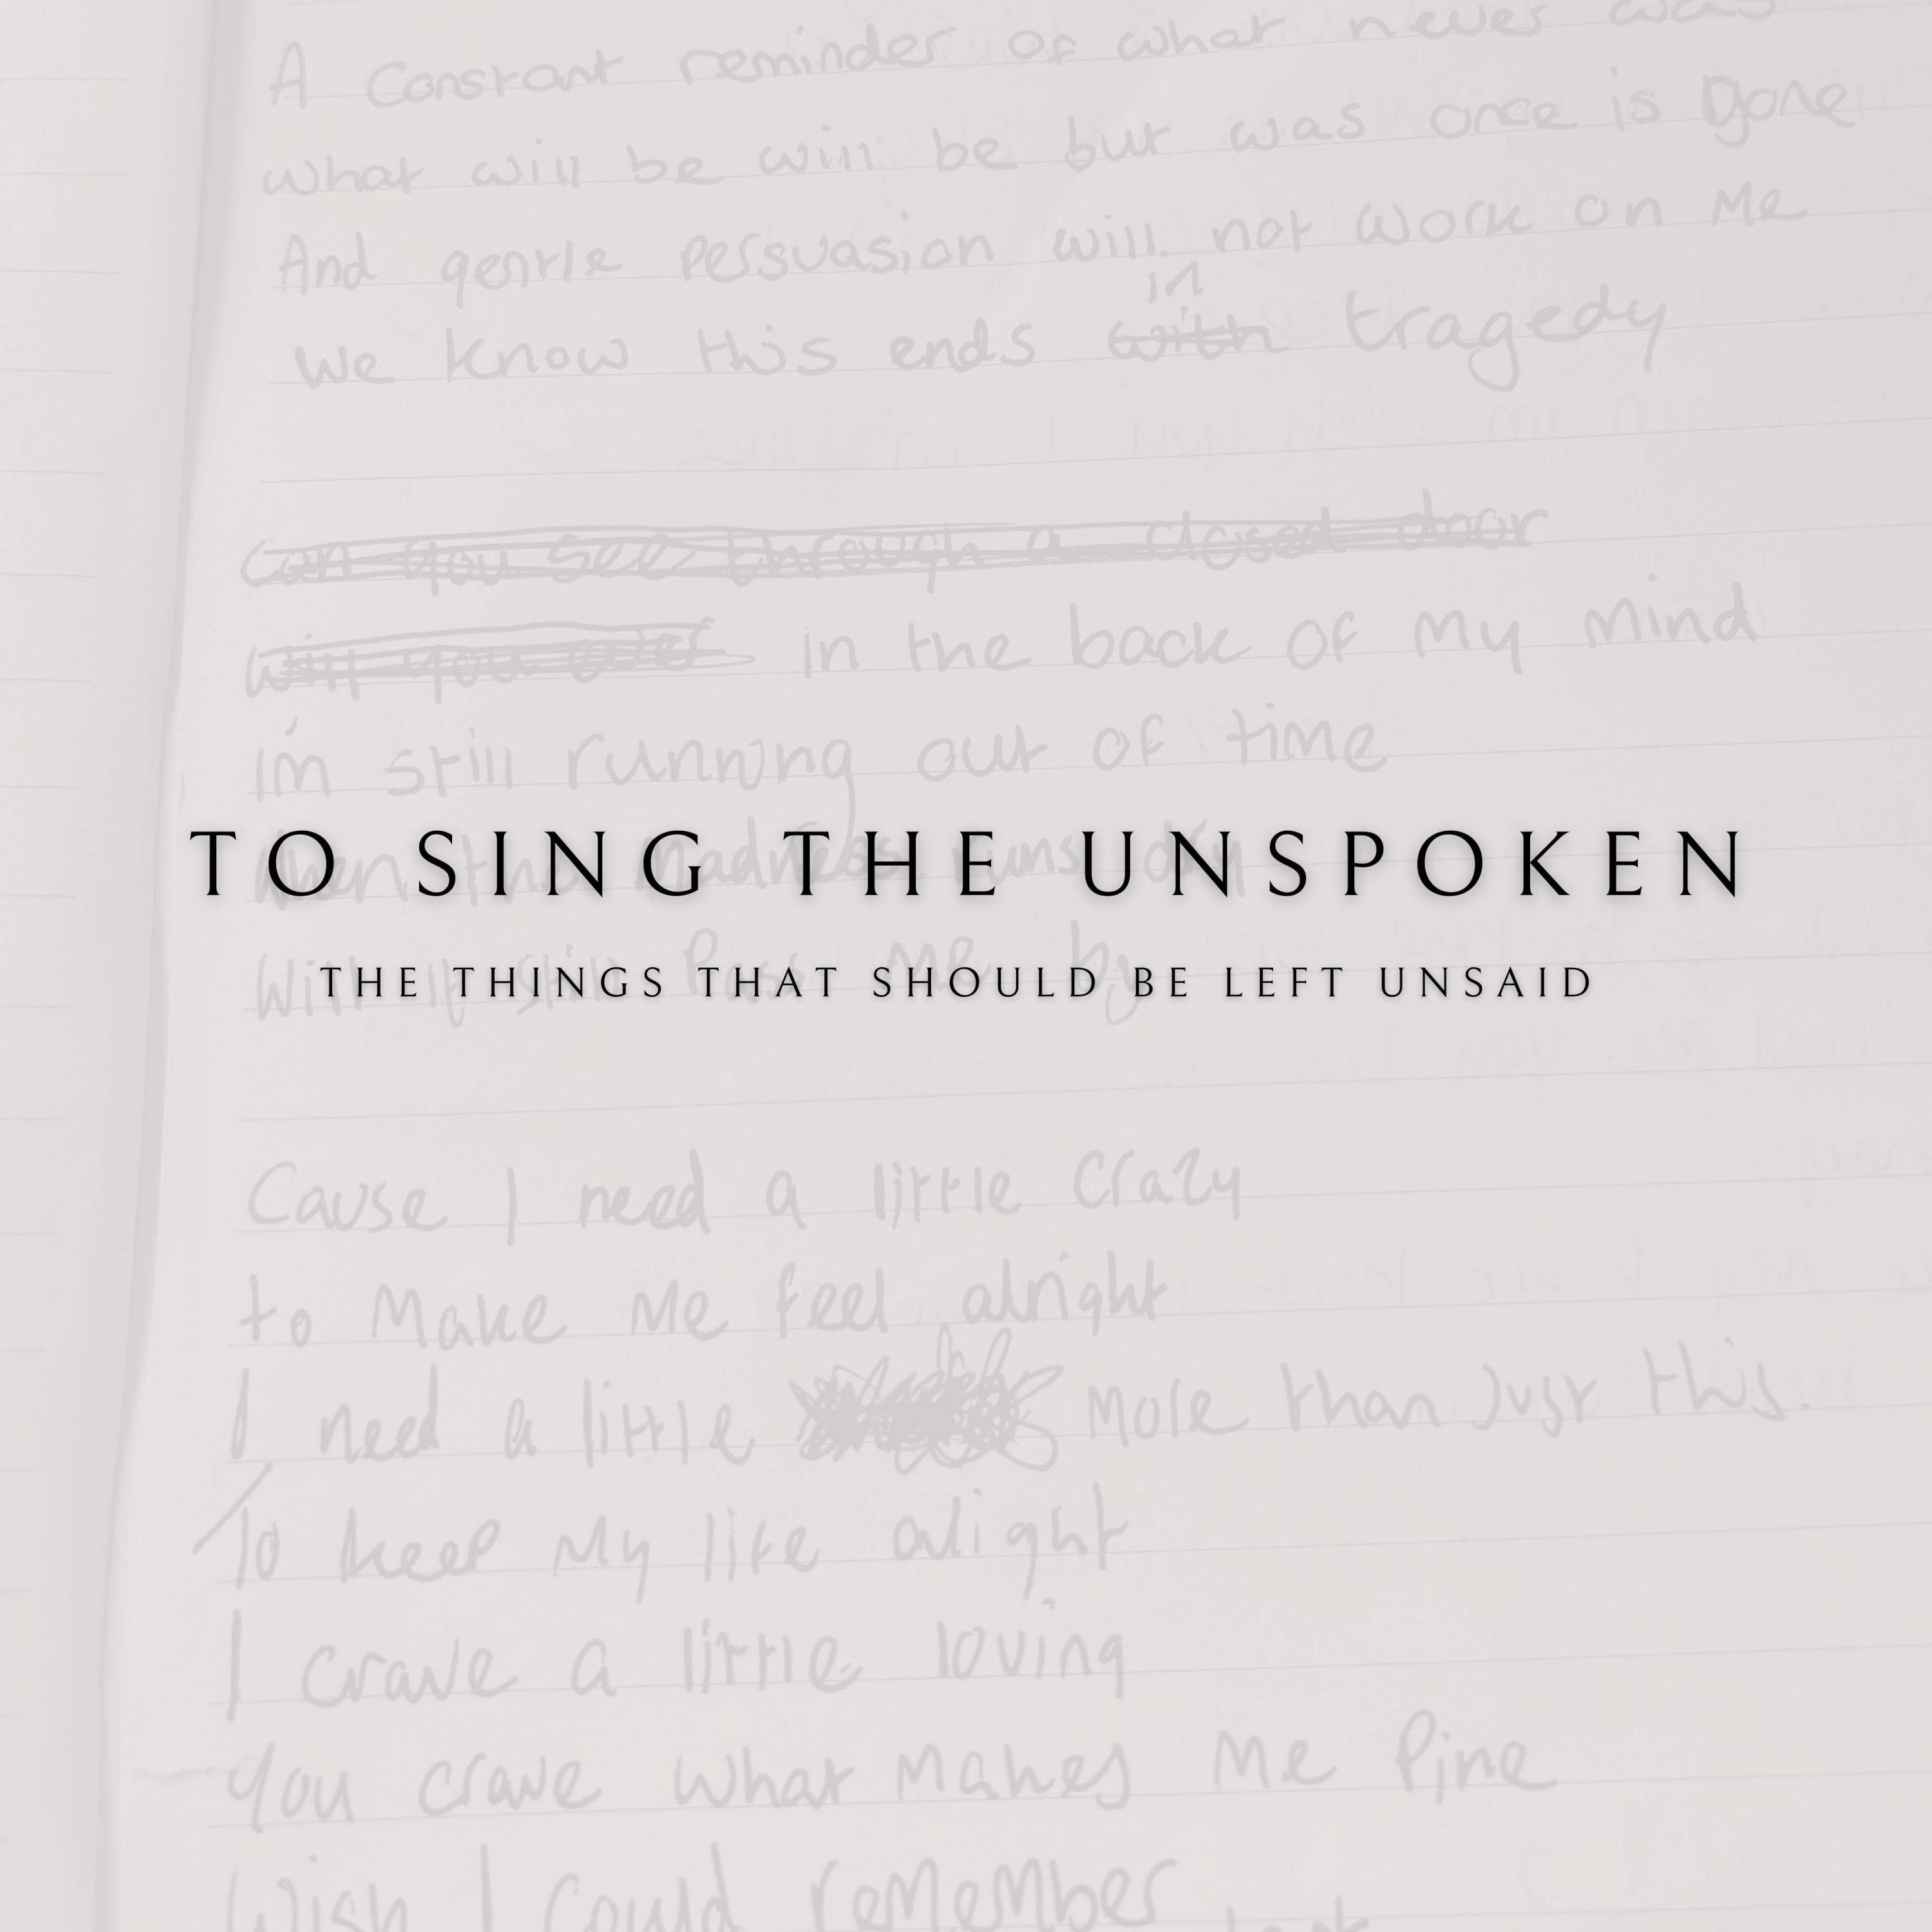 A constant reminder of what never was
what will be will be but was once is gone
And gentle persuasion will not work on me
in
We know this ends with tragedy
Can you see through a closed door
will you ever in the back of my mind
I'm still running out of time
TO SING THE UNSPOKEN
When the madness runs dry
Will it still pass me by
THE THINGS THAT SHOULD BE LEFT UNSAID
Cause I need a little crazy
to make me feel alright
I need a little more than just this.
To keep my life alight
I crave a little loving
You crave what makes me pine
Wish I could remember